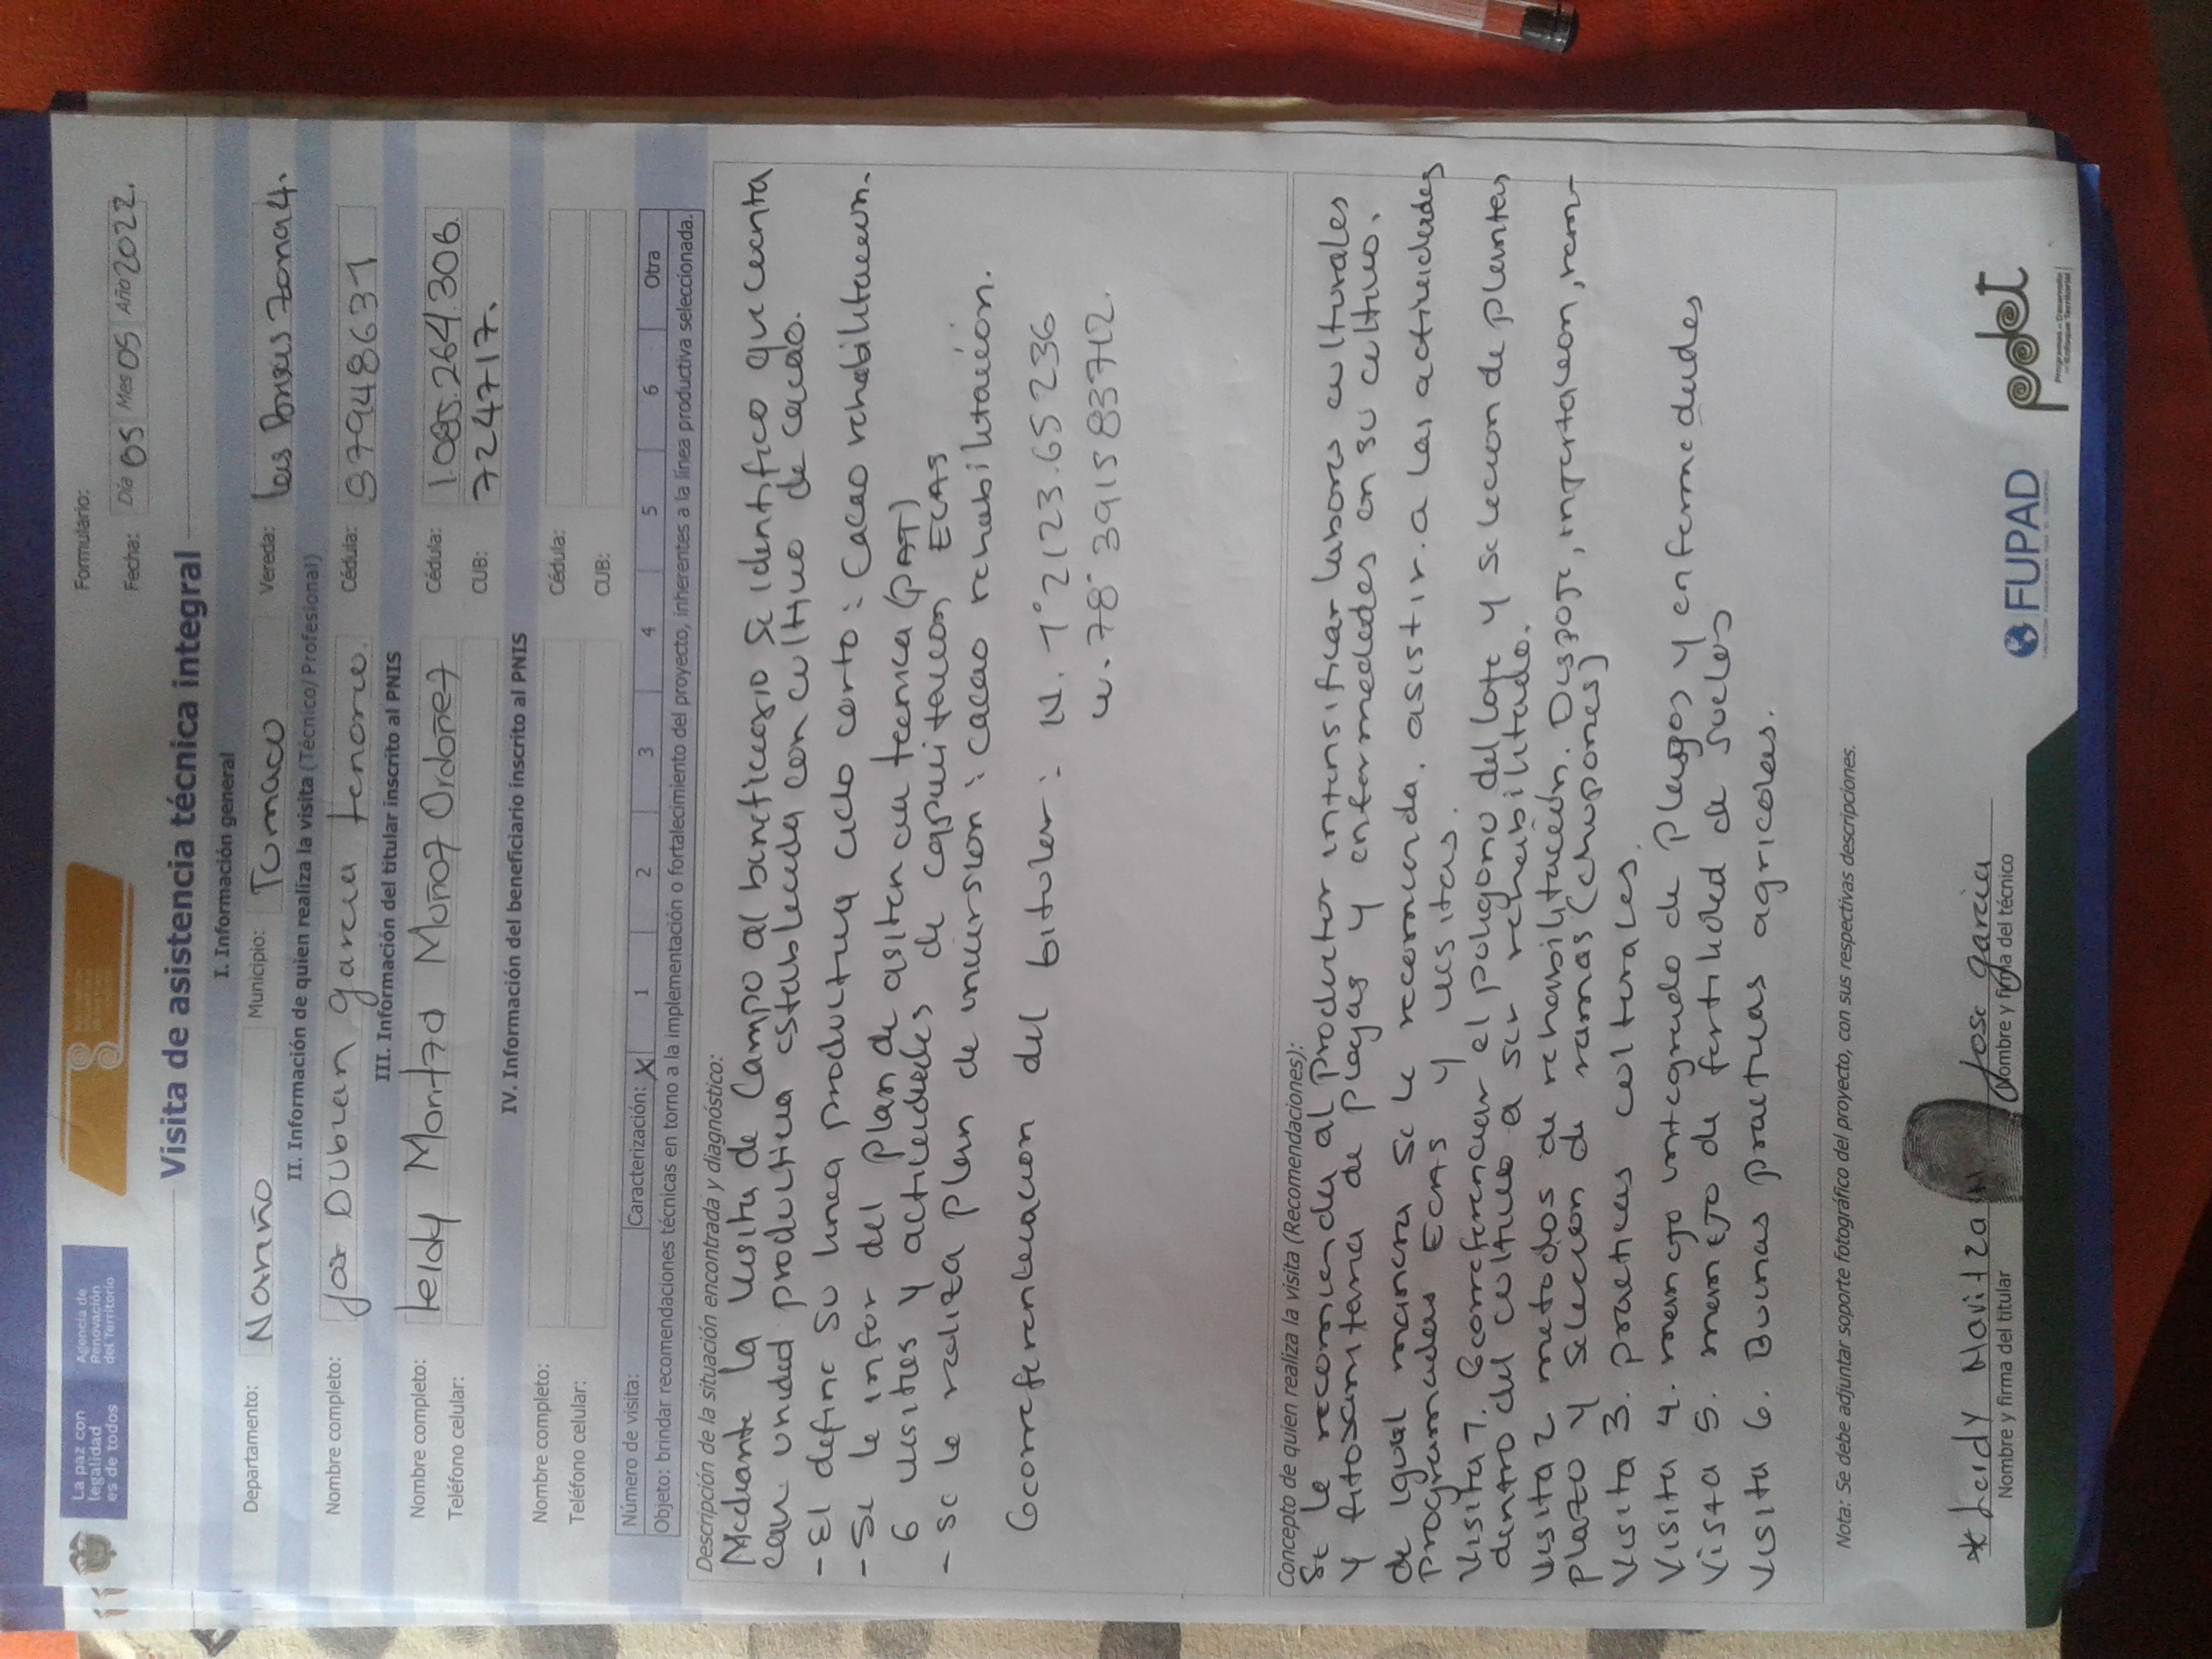 La paz con legalidad es de todos
Agencia de Renovación del Territorio
Formulario:
Fecha: Día 05 Mes 05 Año 2022.
Visita de asistencia técnica integral
I. Información general
Departamento: Nariño Municipio: Tumaco Vereda: Zona 4.
II. Información de quien realiza la visita (Técnico/ Profesional)
Nombre completo: Jose Dubian garcia tenorio. Cédula: 97948631
III. Información del titular inscrito al PNIS
Nombre completo: leidy Moñoz Ordoñez Cédula: 1.085.264.306.
Teléfono celular: CUB: 724717.
IV. Información del beneficiario inscrito al PNIS
Nombre completo: Cédula:
Teléfono celular: CUB:
Número de visita: Caracterización: X 1 2 3 4 5 6 Otra
Objeto: brindar recomendaciones técnicas en torno a la implementación o fortalecimiento del proyecto, inherentes a la línea productiva seleccionada.
Descripción de la situación encontrada y diagnóstico:
Mediante la visita de Campo al beneficiario se identifico que cuenta
con unidad productiva establecida con cultivo de cacao.
- El define su linea productiva ciclo corto: Cacao rehabilitacion.
- Se le infor del plan de asitencia tecnica (PAT)
6 visitas y actividades de capacitacion ECAS
- se le realiza plan de inversion: cacao rehabilitación.
Georreferenciacion del titular: N. 1° 2123.65236
w. 78° 3915 83742.
Concepto de quien realiza la visita (Recomendaciones):
Se le recomienda al Productor intensificar labores culturales
y fitosanitaria de plagas y enfermedades en su cultivo.
de igual manera se le recomienda. asistir. a las actividades
programadas ECAS y visitas.
Visita 1. Georreferenciar el poligono del lote y seleccion de plantas
dentro del cultivo a ser rehabilitado.
Visita 2 metodos de rehabilitación. Despoje, rem-
plazo y seleccion de ramas (chupones)
Visita 3. practicas culturales.
Visita 4. manejo integrado de plagas y enfermedades
Vista 5. manejo de fertilidad de suelos
Visita 6. Buenas practicas agricolas.
Nota: Se debe adjuntar soporte fotográfico del proyecto, con sus respectivas descripciones.
* Leidy Maritza M Jose garcia
Nombre y firma del titular Nombre y firma del técnico
FUPAD
pdet
Programas de Desarrollo con Enfoque Territorial